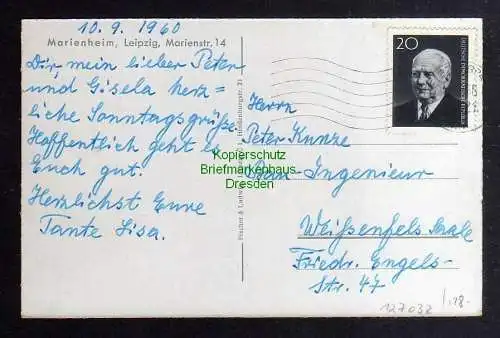 10. 9. 1960
Marienheim, Leipzig, Marienstr. 14
Dir, mein lieber Peter
und Gisela herz=
liche Sonntagsgrüße.
Hoffentlich geht es
Euch gut.
Herzlichst Eure
Tante Lisa.
20
DEUTSCHE DEMOKRATISCHE REPUBLIK
Herrn
Peter Kunze
Bau Ingenieur
Weißenfels Saale
Friedr. Engels-
Str. 47
Kopierschutz
Briefmarkenhaus
Dresden
127032
18.-